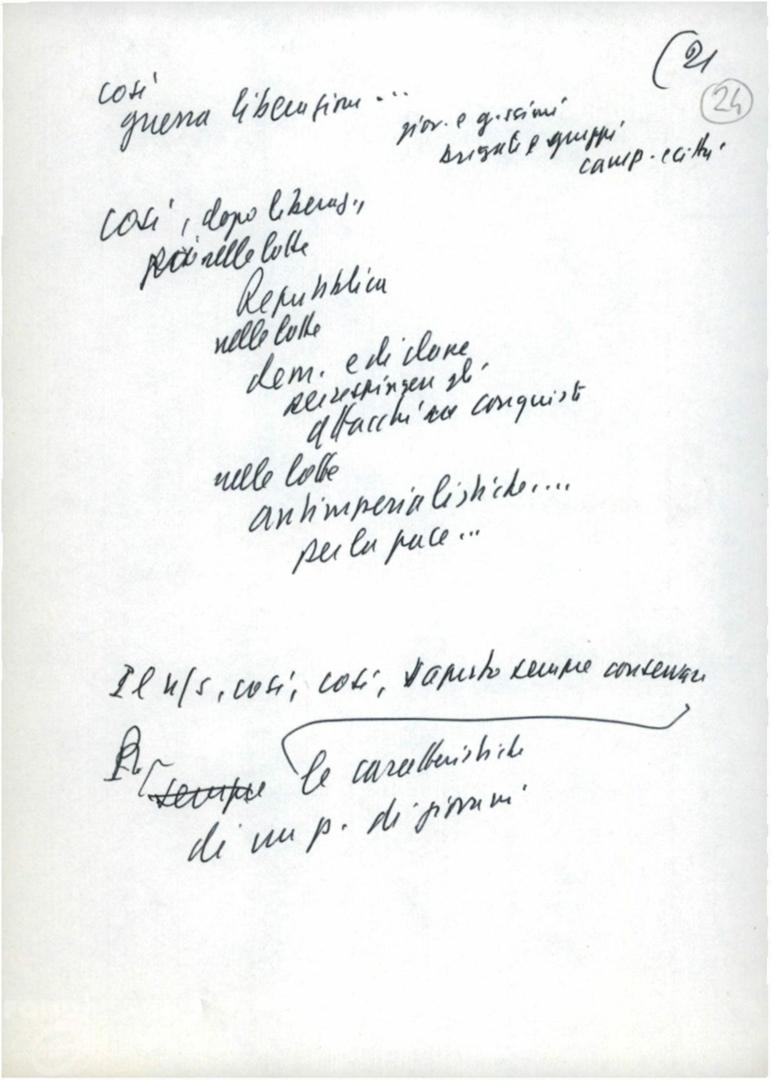 (21
24
così
guerra liberazione ...
giov. e giov.imi
brigate e gruppi
camp. e città
così, dopo liberaz.,
poi nelle lotte
Repubblica
nelle lotte
dem. e di classe
per respingere gli
attacchi conquiste
nelle lotte
antimperialistiche....
per la pace...
Il n/s, così, così, saputo sempre conservare
sempre le caratteristiche
di un p. di giovani